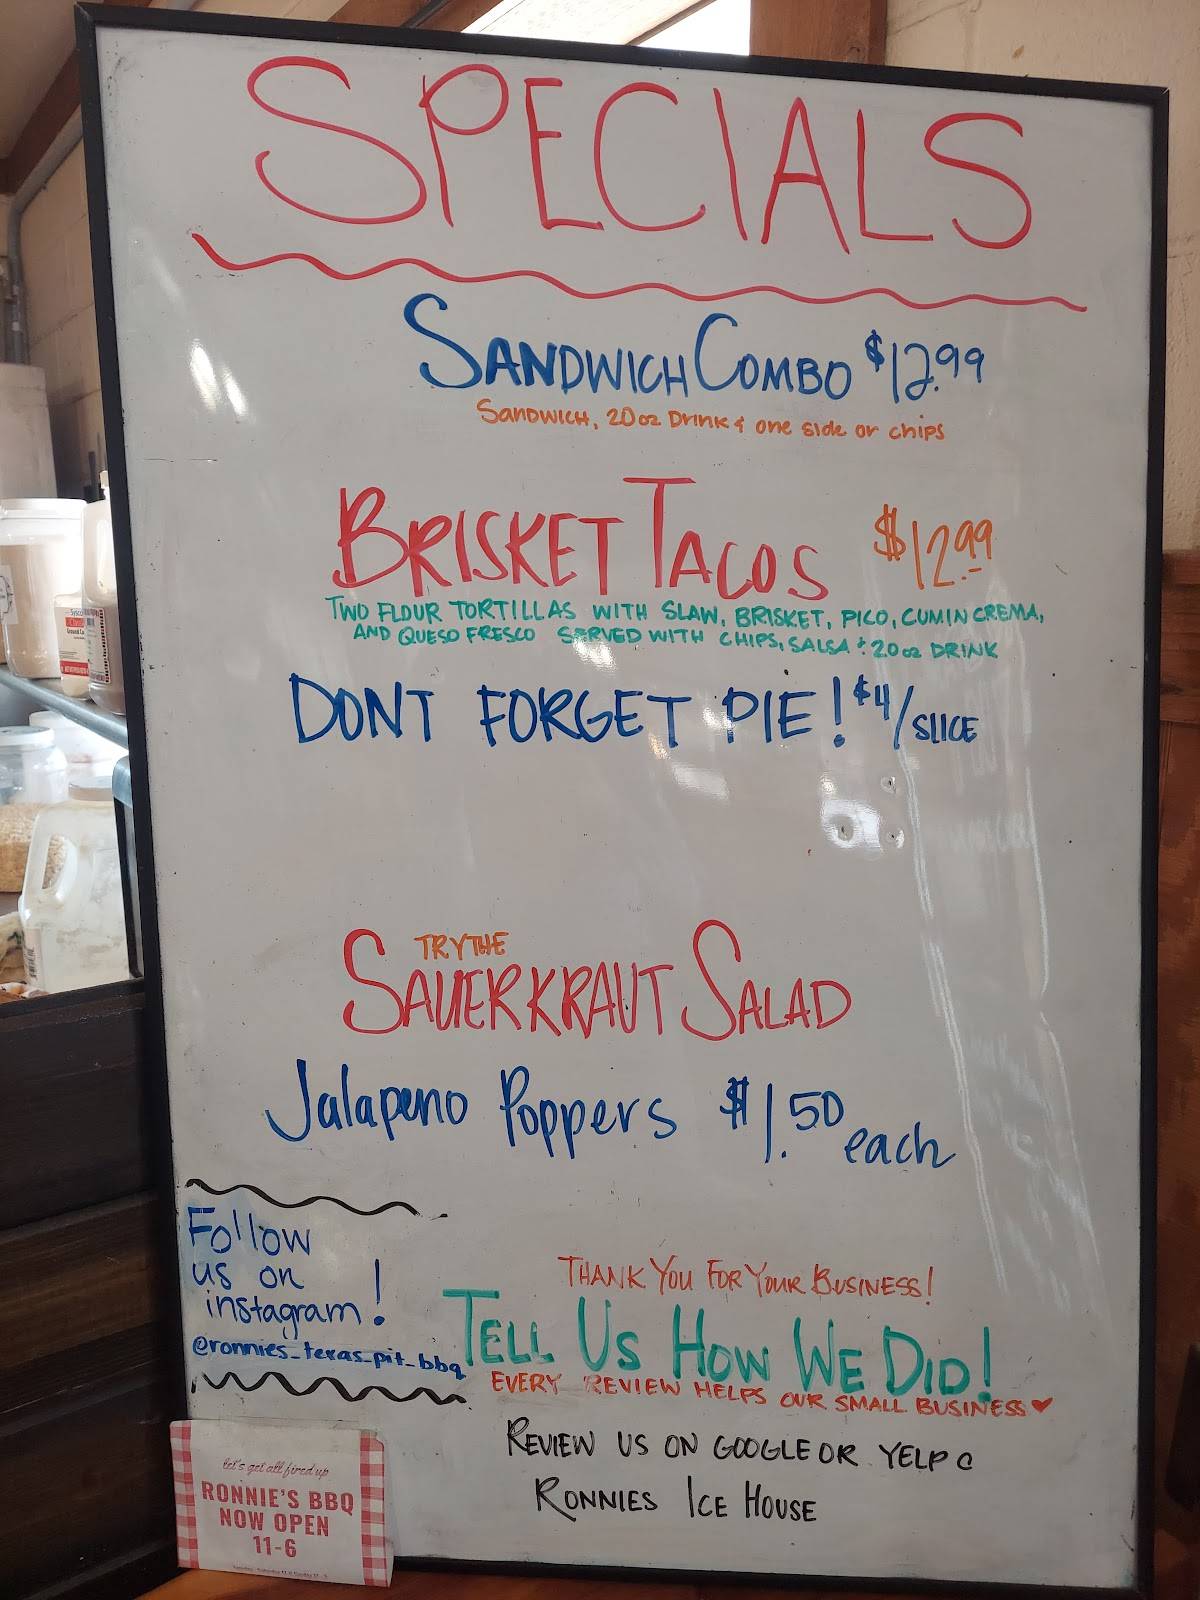 SPECIALS
SANDWICH COMBO $12.99
SANDWICH, 20oz Drink & one side or chips
BRISKET TACOS $12.99
TWO FLOUR TORTILLAS WITH SLAW, BRISKET, PICO, CUMIN CREMA,
AND QUESO FRESCO SERVED WITH CHIPS, SALSA & 20oz DRINK
DONT FORGET PIE! $4/SLICE
TRY THE
SAUERKRAUT SALAD
Jalapeno Poppers $1.50 each
Follow
us on
instagram!
@ronnies_texas_pit_bbq
THANK YOU FOR YOUR BUSINESS!
TELL US HOW WE DID!
EVERY REVIEW HELPS OUR SMALL BUSINESS ♥
REVIEW US ON GOOGLE OR YELP C
RONNIES ICE HOUSE
let's get all fired up
RONNIE'S BBQ
NOW OPEN
11-6